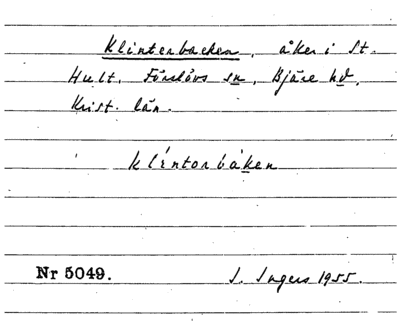 Klinterbacken, åker i St.
Hult. Förslövs sn, Bjäre hd,
Krist. län.
klíntorbáken
Nr 5049.
I. Ingers 1955.